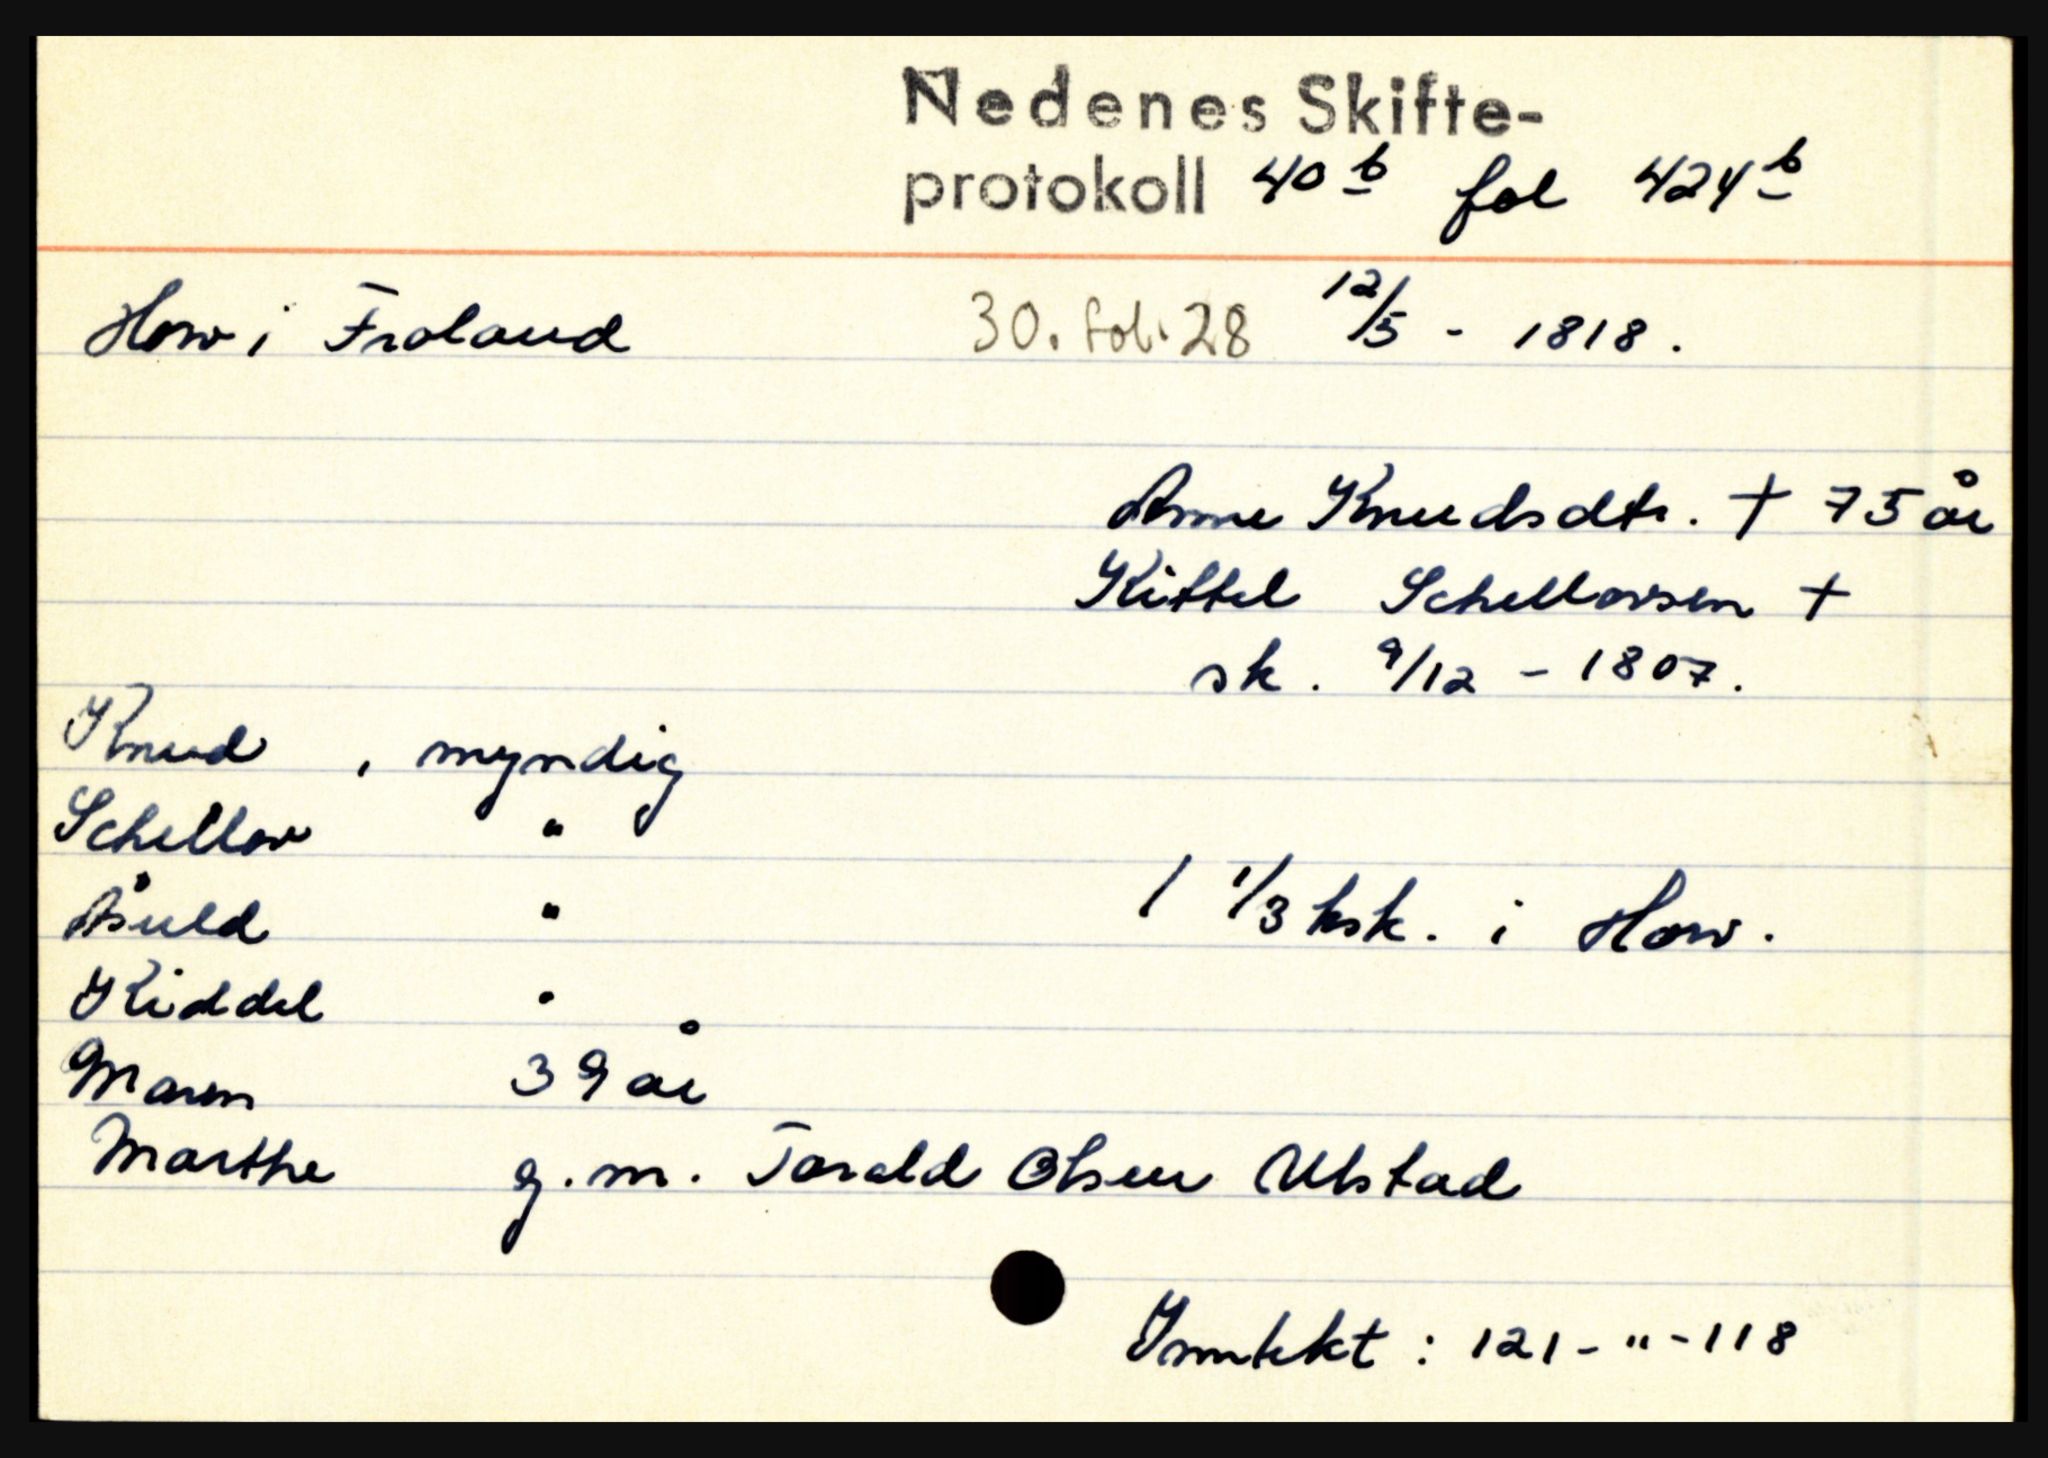 Nedenes Skifte-
protokoll 40 b fol 424 b
How i Froland 30. fol. 28 12/5 - 1818.
Anne Knudsdtr. † 75 år
Kittel Schellowsen †
sk. 9/12 - 1807.
Knud , myndig
Schellow "
Asuld " 1 1/3 ksk. i How.
Kiddel "
Maren 39 år
Marthe g. m. Torald Olsen Ulstad
Inntekt : 121 - " - 118